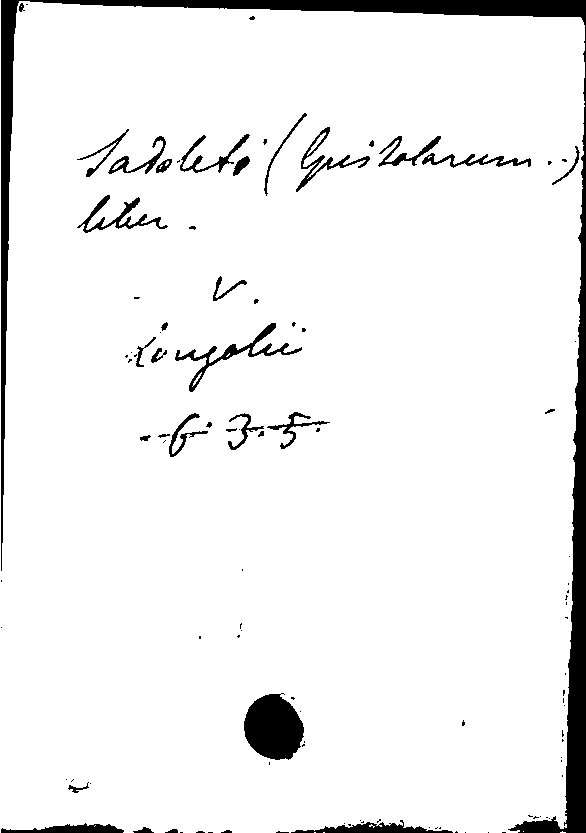 Sadoleti (Epistolarum ..)
liber.
V.
Longolii
6. 3. 5.